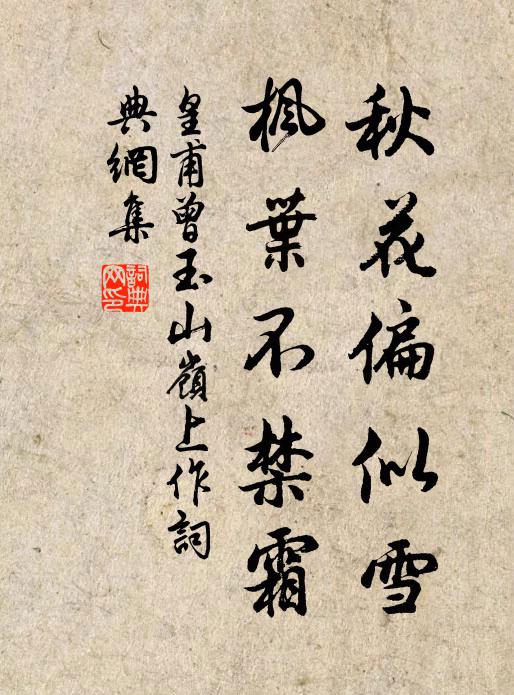 秋花偏似雪
枫葉不禁霜
皇甫曾玉山嶺上作詞
典網集
詞典网印